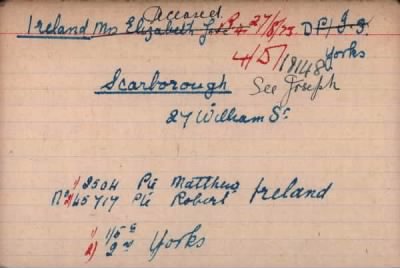 Deceased
Ireland Mrs Elizabeth Jane R 27/8/73 D P/I.S.
4/5/19148 Yorks
Scarborough See Joseph
27 William St
1) 2504 Pte Matthew Ireland
No 2) 45717 Pte Robert
1) 1/5th
2) 2nd Yorks